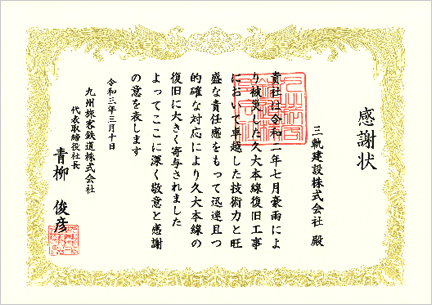 感謝状
三軌建設株式会社 殿
貴社は令和二年七月豪雨によ
り被災した久大本線復旧工事
において卓越した技術力と旺
盛な責任感をもって迅速且つ
的確な対応により久大本線の
復旧に大きく寄与されました
よってここに深く敬意と感謝
の意を表します
令和三年三月十日
九州旅客鉄道株式会社
代表取締役社長
青柳 俊彦